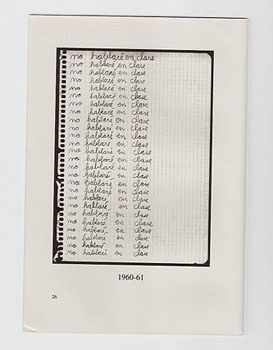 no hablaré en clase
no hablaré en clase
no hablaré en clase
no hablaré en clase
no hablaré en clase
no hablaré en clase
no hablaré en clase
no hablaré en clase
no hablaré en clase
no hablaré en clase
no hablaré en clase
no hablaré en clase
no hablaré en clase
no hablaré en clase
no hablaré en clase
no hablaré en clase
no hablaré en clase
no hablaré en clase
no hablaré en clase
no hablaré en clase
no hablaré en clase
no hablaré en clase
no hablaré en clase
no hablaré en clase
no hablaré en clase
no hablaré en clase
1960-61
26